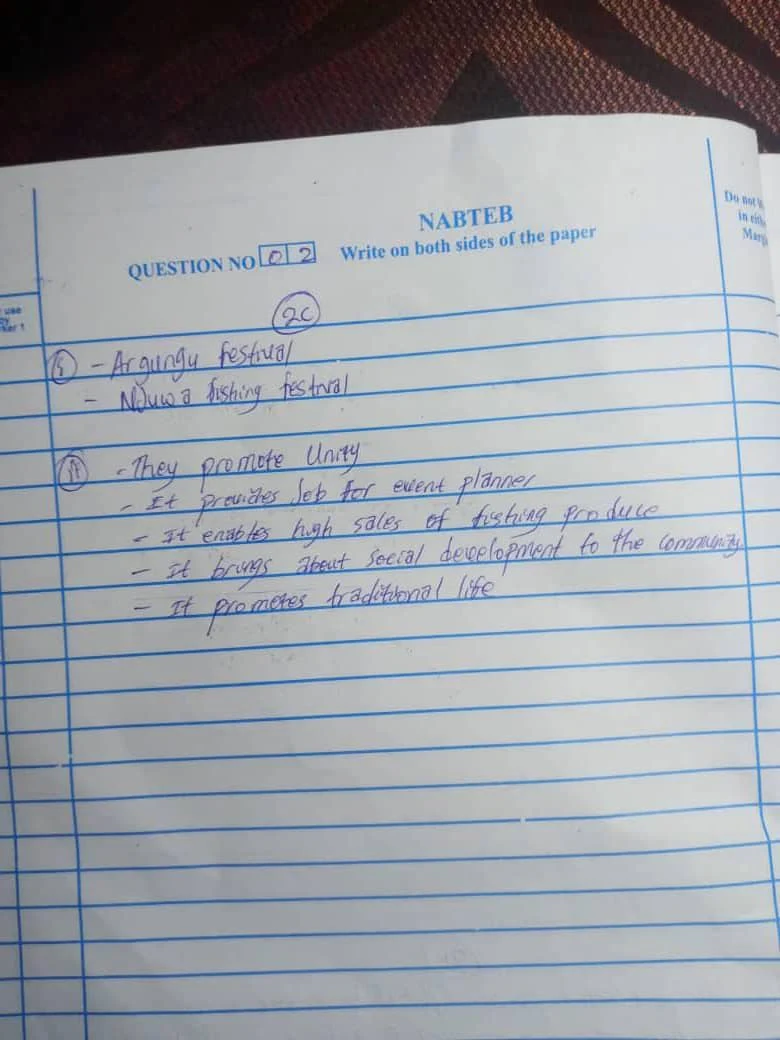 NABTEB
QUESTION NO 02 Write on both sides of the paper
Do not
in
2C
(i) - Argungu festival
- Nduwa fishing festival
(ii) - They promote Unity
- It provides Job for event planner
- It enables high sales of fishing produce
- It brings about Social development to the community
- It promotes traditional life